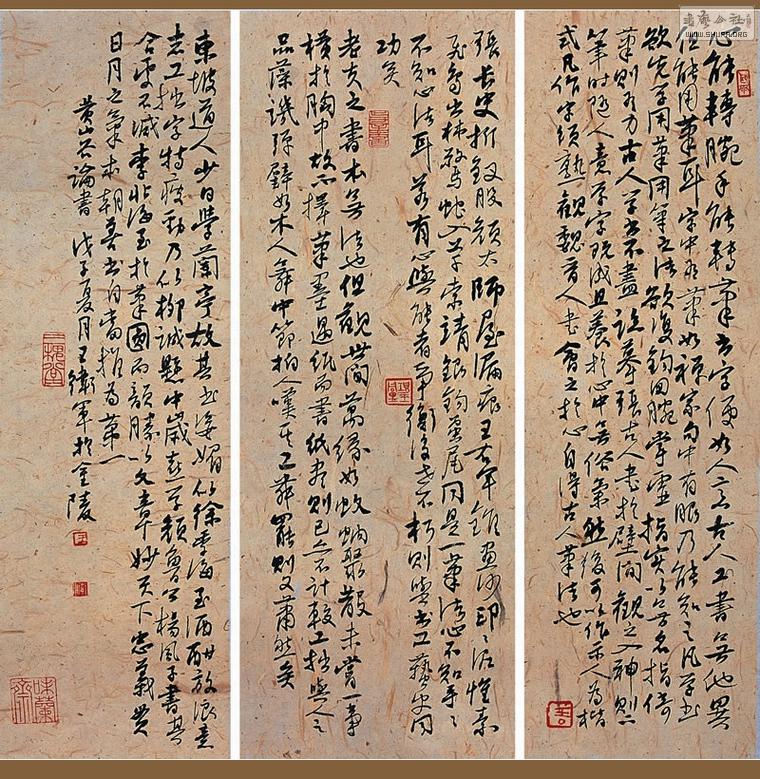 心能轉腕手能轉筆書字便如人意古人工書無他異
但能用筆耳字中有筆如禪家句中有眼乃能知之凡學書
欲先學用筆用筆之法欲雙鉤回腕掌虛指實以無名指倚
筆則有力古人學書不盡臨摹張古人書於壁間觀之入神則
筆時隨人意學字既成且養於心中無俗氣然後可以作示人為楷
式凡作字須熟觀魏晉人書會之於心自得古人筆法也
張長史折釵股顏太師屋漏痕王右軍錐畫沙印印泥懷素
飛鳥出林驚蛇入草索靖銀鉤蠆尾同是一筆法心不知手手
不知心法耳若有心與能者爭衡後世不朽則與書工藝史同
功矣
老夫之書本無法也但觀世間萬緣如蚊蚋聚散未嘗一事
橫於胸中故不擇筆墨遇紙而書紙盡則已亦不計較工拙與人之
品藻譏彈譬如木人舞中節拍人嘆其工舞罷則又蕭然矣
東坡道人少日學蘭亭故其書姿媚似徐季海至酒酣放浪意
忘工拙字特瘦勁乃似柳誠懸中歲喜學顏魯公楊風子書其
合處不減李北海至於筆圓而韻勝以文章妙天下忠義貫
日月之氣本朝善書自當推為第一
黃山谷論書 戊子夏月王衛軍於金陵
WWW.SHUFA.ORG